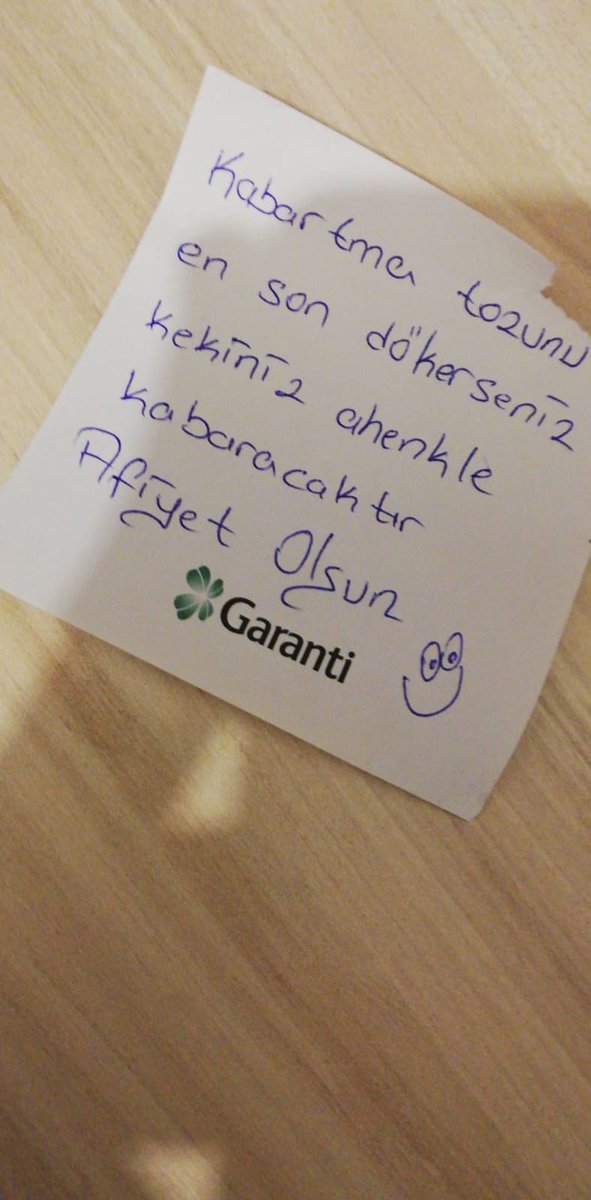 Kabartma tozunu
en son dökerseniz
kekiniz ahenkle
kabaracaktır
Afiyet Olsun
Garanti